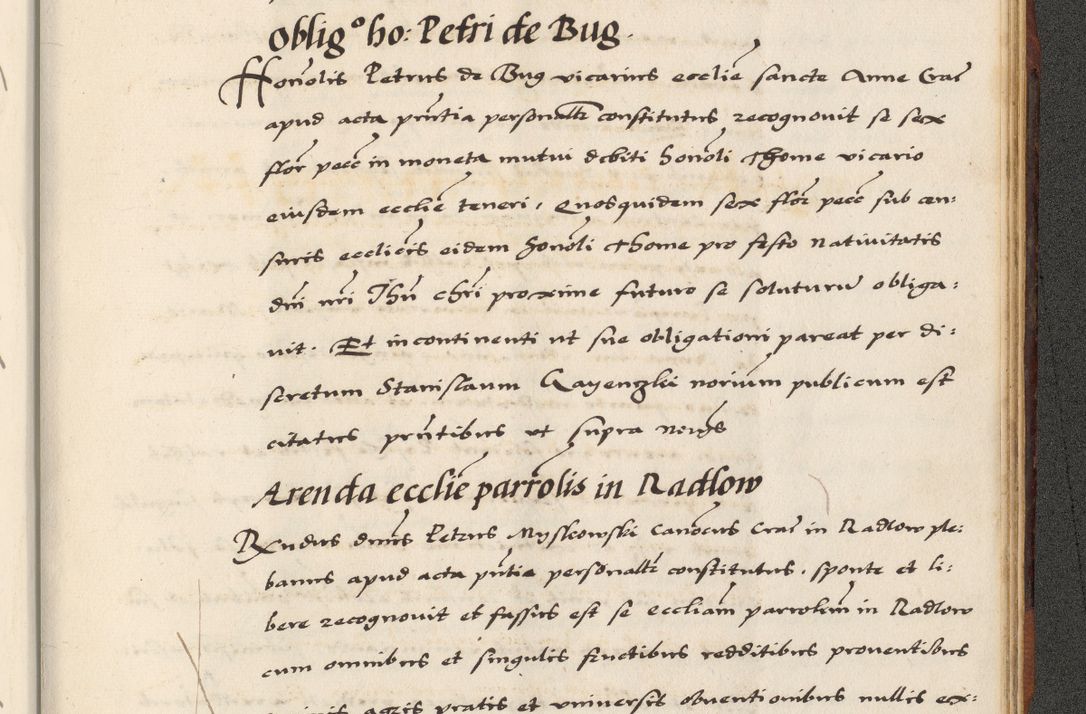 Oblig° ho: Petri de Bug.
Honolis Petrus de Bug vicarius ecclie sancte Anne Crac
apud acta prntia personaltr constitutus recognovit se sex
flor pecc in moneta mutui debiti honoli Thome vicario
eiusdem ecclie teneri, Quosquidem sex flor pecc sub cen:
suris ecclicis eidem honoli Thome pro festo Nativitatis
dni nri Jhu chri proxime futuro se soluturu obliga:
vit. Et incontinenti ut sue obligationi pareat per di:
scretum Stanislaum notium publicum est
citatus prntibus ut supra
Arenda ecclie parrolis in Radlow
Rndus dnus Petrus Myskowski Canocus Crac in Radlow ple:
banus apud acta pntia personaltr constitutus, sponte et li:
bere recognovit et fassus est se eccliam parrolem in Radlow
cum omnibus et singulis fructibus redditibus proventibus
agris pratis et universis obventionibus nullis ex: